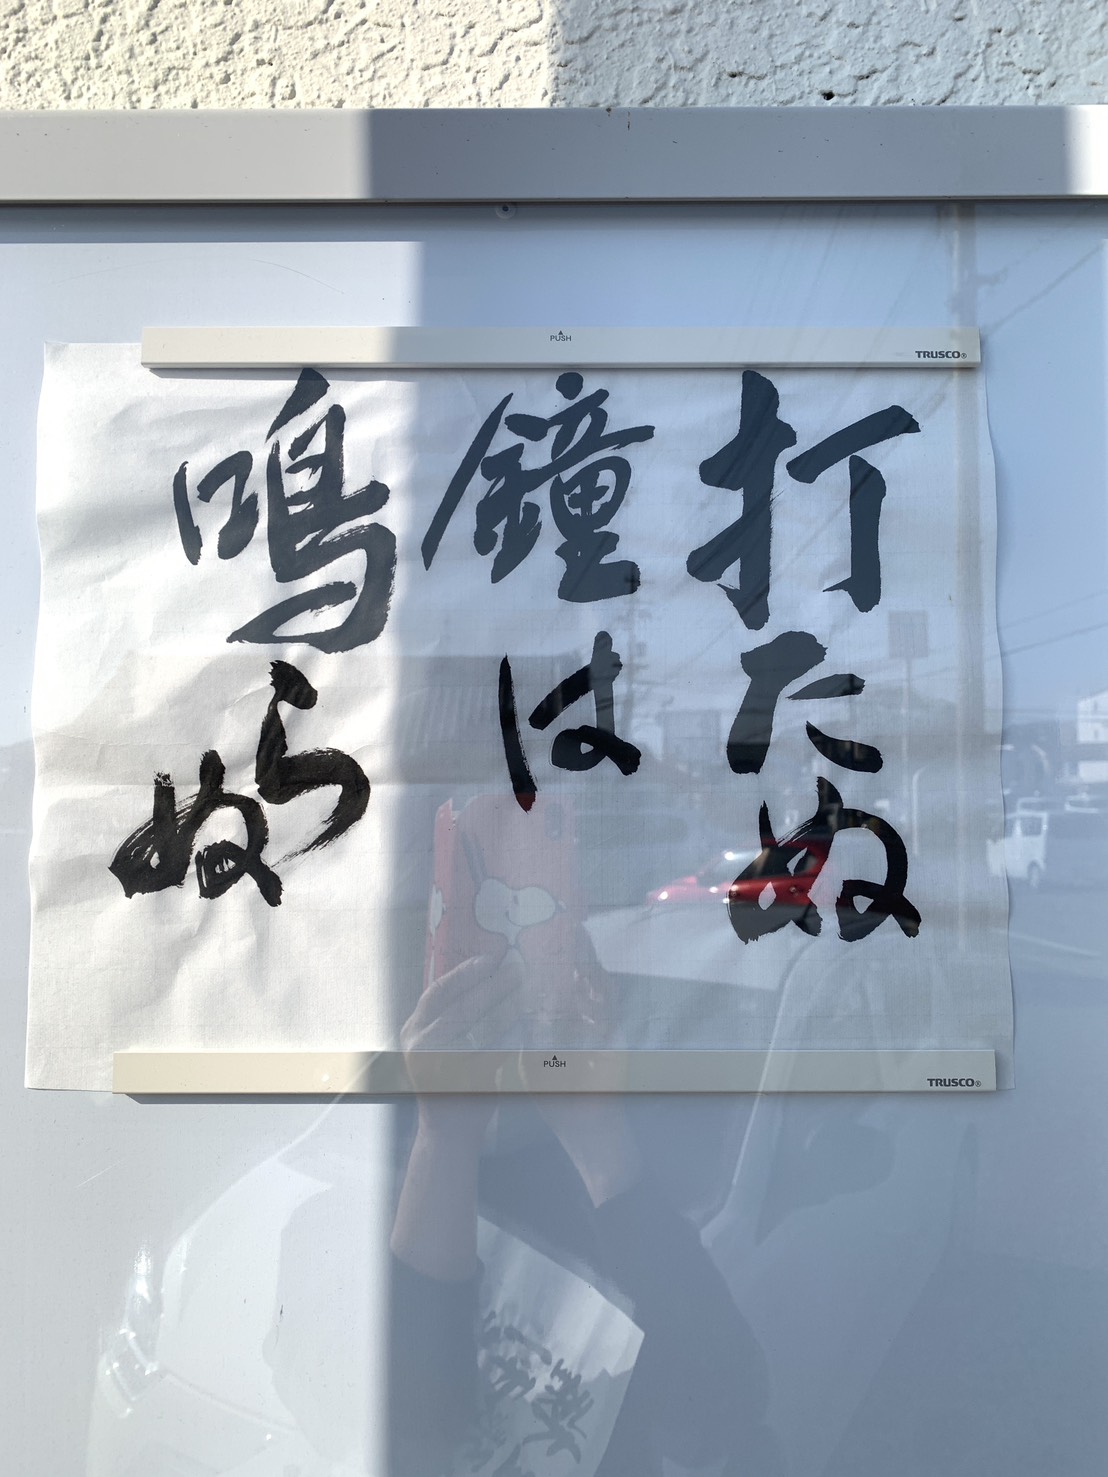 打たぬ
鐘は
鳴らぬ
PUSH
TRUSCO®
PUSH
TRUSCO®